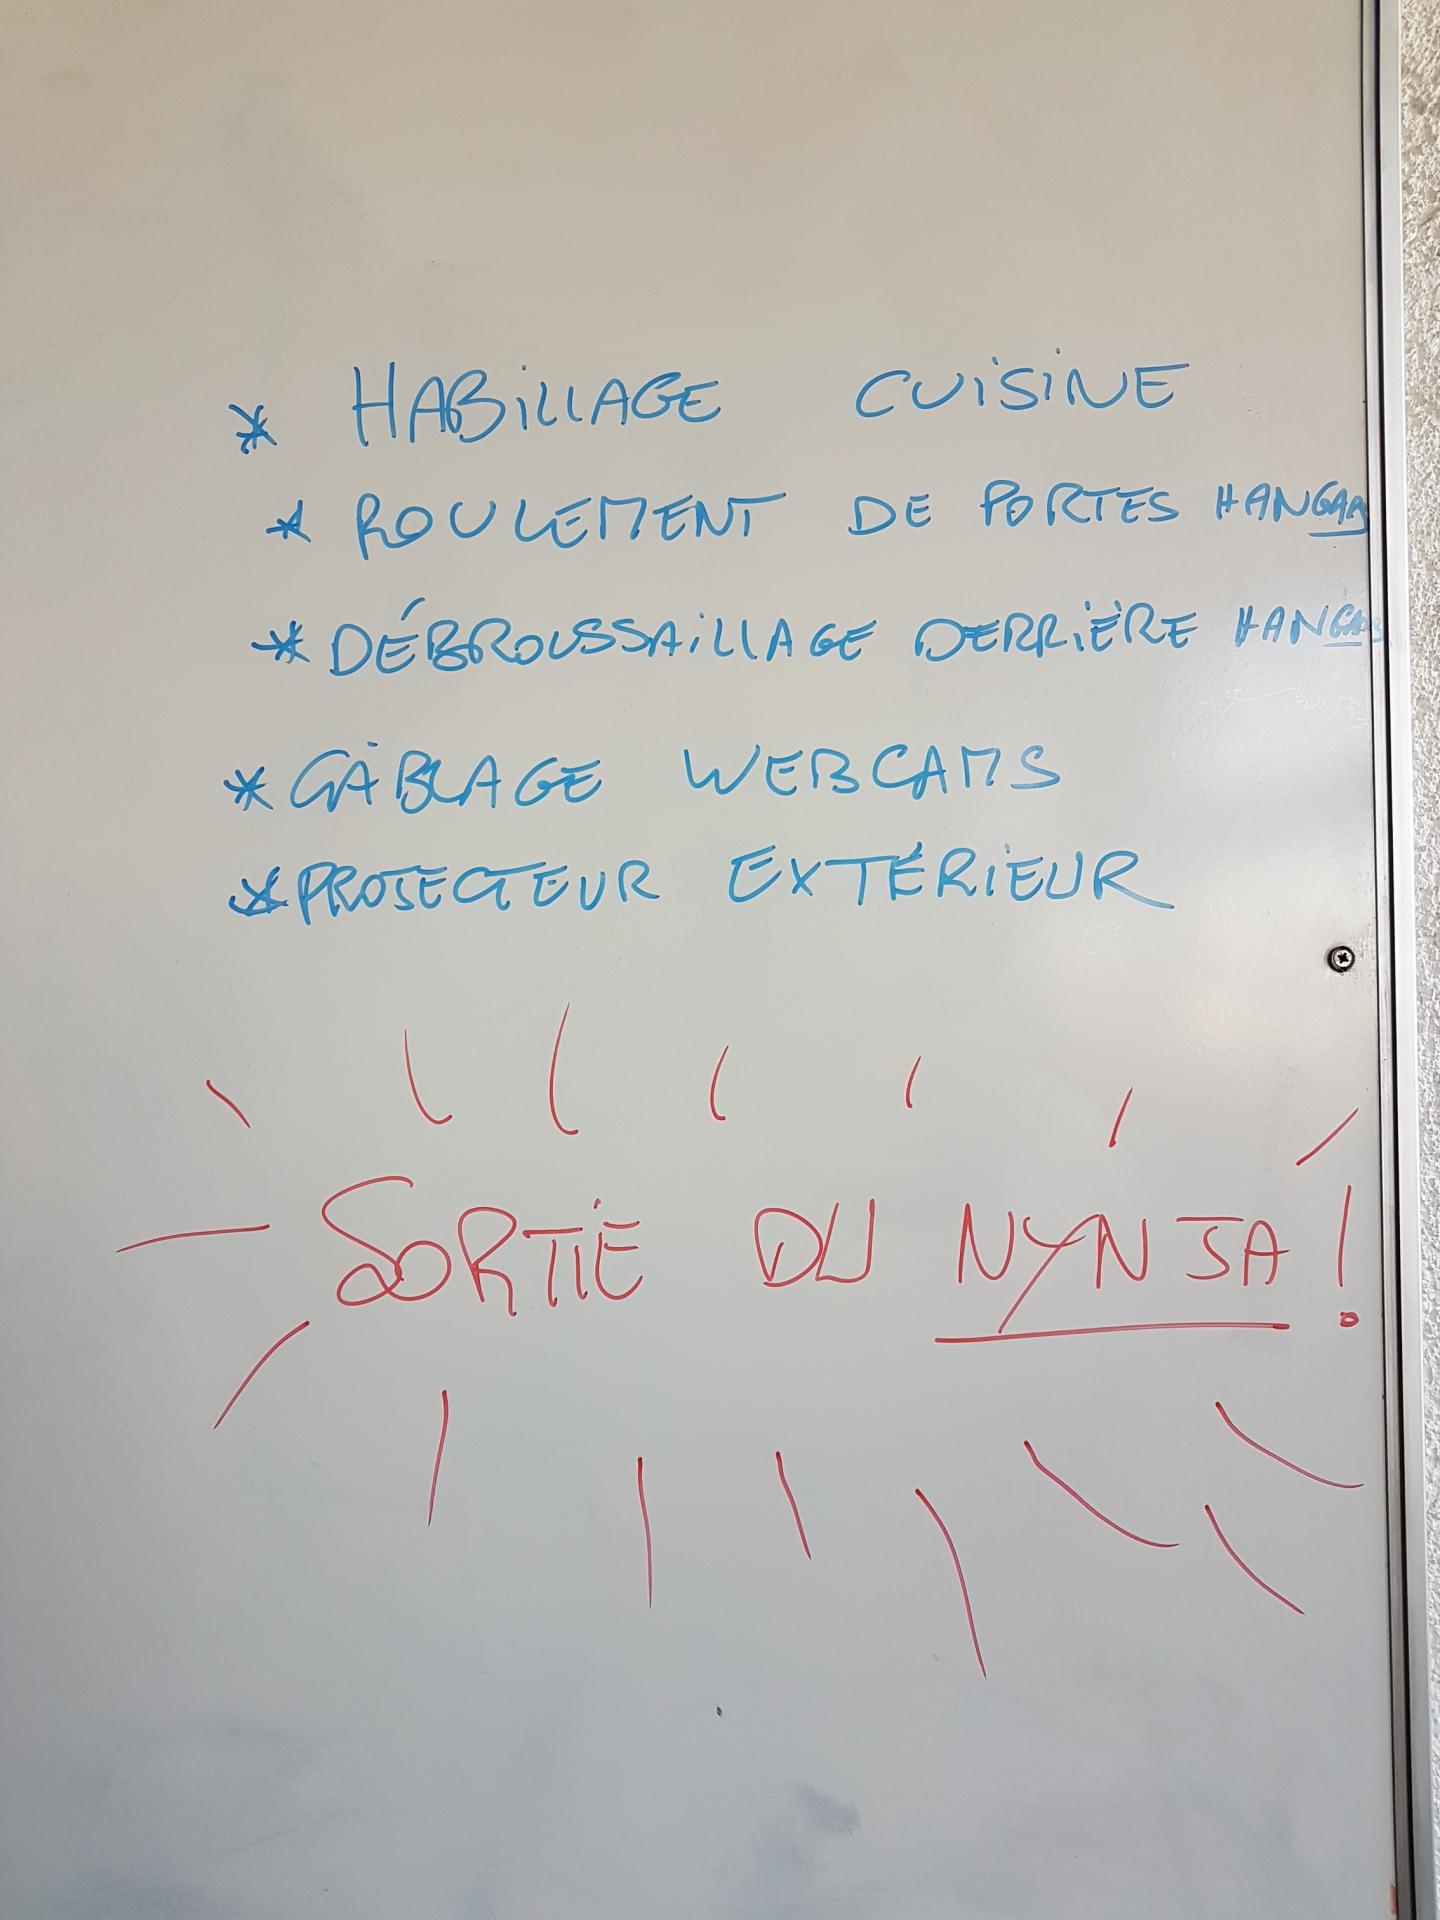 * HABILLAGE CUISINE
* ROULEMENT DE PORTES HANGAR
* DÉBROUSSAILLAGE DERRIÈRE HANGAR
* CÂBLAGE WEBCAMS
* PROJECTEUR EXTÉRIEUR
SORTIE DU NYNJA !